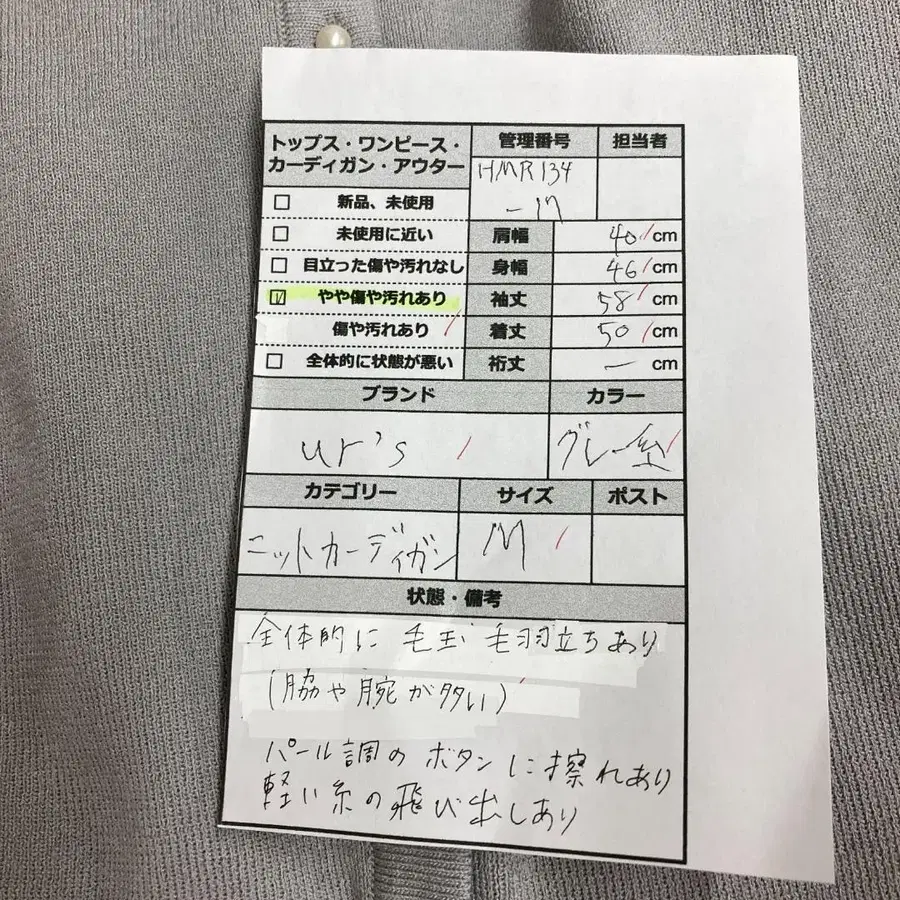 トップス・ワンピース・
カーディガン・アウター
管理番号
担当者
HMR134
-m
☐ 新品、未使用
☐ 未使用に近い
☐ 目立った傷や汚れなし
☑ やや傷や汚れあり
傷や汚れあり
☐ 全体的に状態が悪い
肩幅 40 cm
身幅 46 cm
袖丈 58 cm
着丈 50 cm
裄丈 ー cm
ブランド
カラー
ur's
グレー系
カテゴリー
サイズ
ポスト
ニットカーディガン
M
状態・備考
全体的に毛玉・毛羽立ちあり
(脇や腕が多い)
パール調のボタンに擦れあり
軽い糸の飛び出しあり